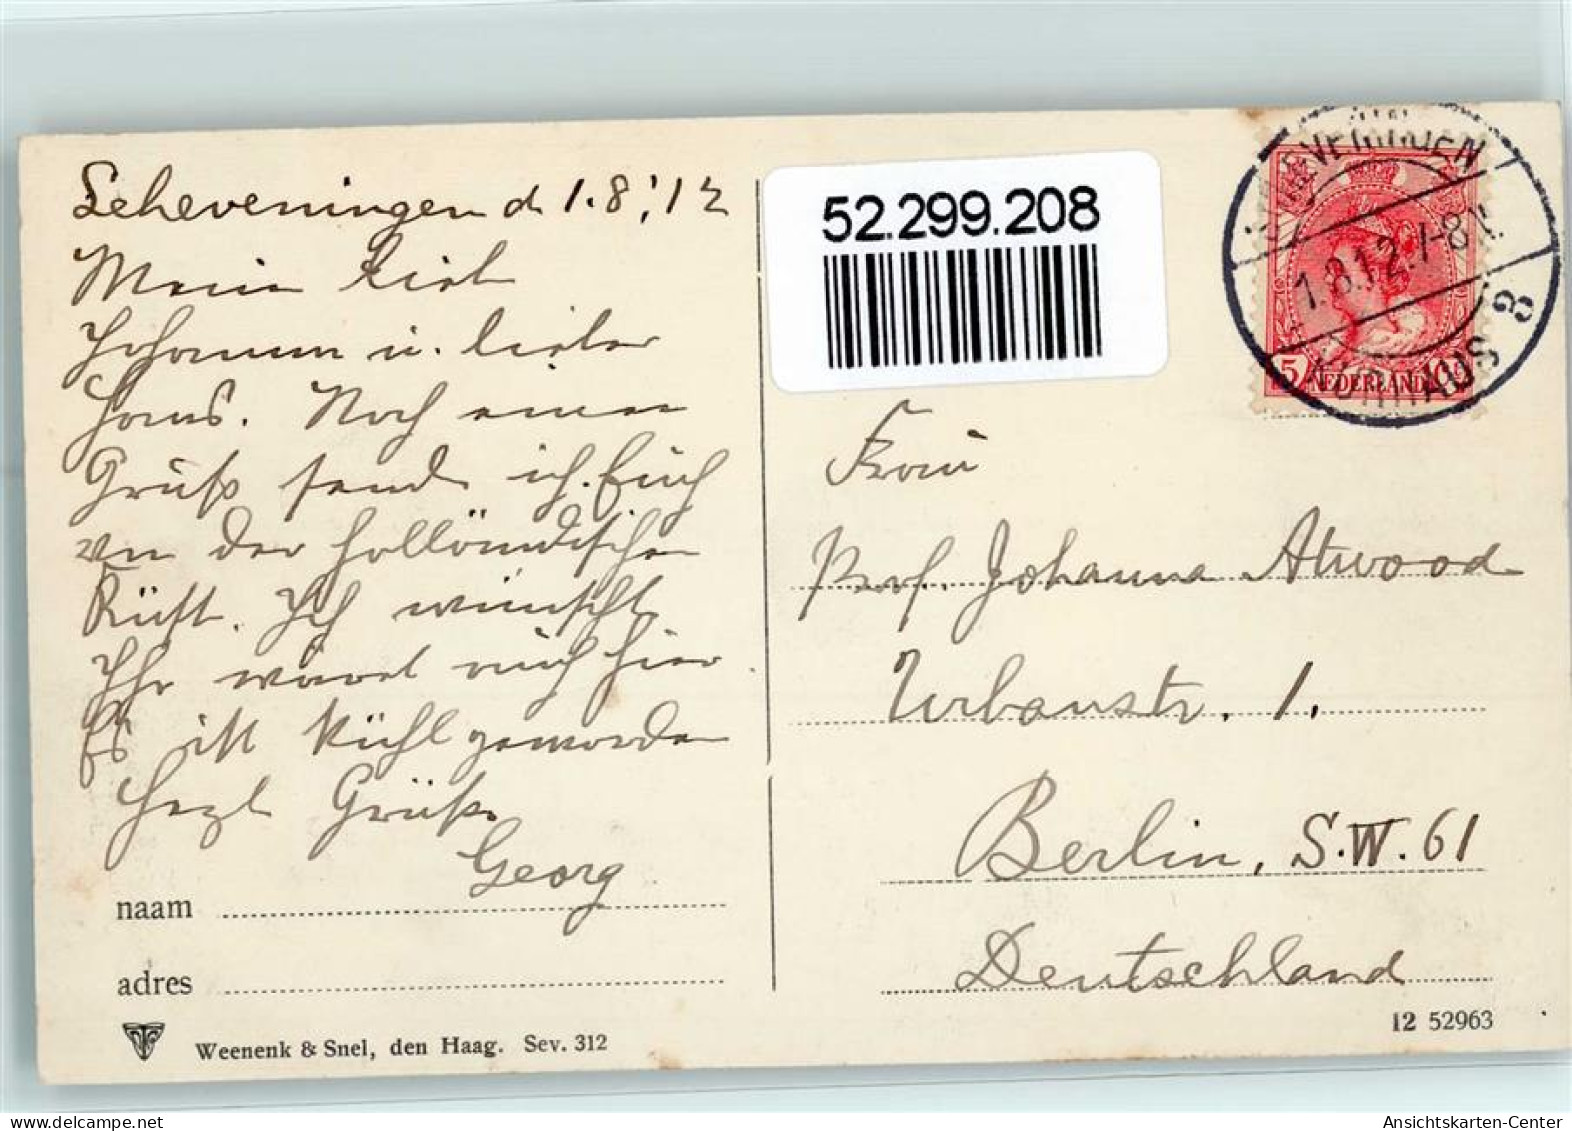 Scheveningen d. 1.8.'12
Meine liebe
Johanna u. lieber
Hans. Noch einen
Gruß sende ich Euch
von der holländischen
Küste. Ich wünschte
Ihr wäret auch hier
Es ist kühl geworden
Herzl Grüße
Georg
naam
adres
Weenenk & Snel, den Haag. Sev. 312
52.299.208
1.8.12.7-8
KURHAUS 3
5 NEDERLAND
Frau
Prof. Johanna Atwood
Urbanstr. 1.
Berlin, S.W. 61
Deutschland
12 52963
Ansichtskarten-Center